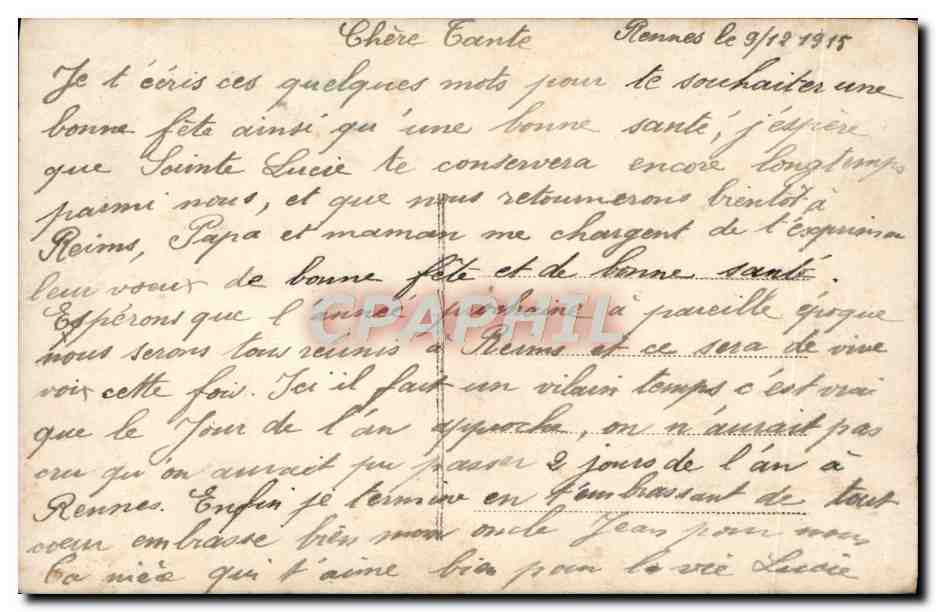 Chère Tante Rennes le 9/12 1915
Je t'écris ces quelques mots pour te souhaiter une
bonne fête ainsi qu'une bonne santé, j'éspère
que Sainte Lucie te conservera encore longtemps
parmi nous, et que nous retournerons bientôt à
Reims, Papa et maman me chargent de t'éxprimer
leur voeux de bonne fête et de bonne santé.
Espérons que l'année prochaine à pareille époque
nous serons tous réunis à Reims et ce sera de vive
voix cette fois. Ici il fait un vilain temps c'est vrai
que le Jour de l'an approche, on n'aurait pas
cru qu'on aurait pu passer 2 jours de l'an à
Rennes. Enfin je termine en t'embrassant de tout
coeur embrasse bien mon oncle Jean pour nous
Ta nièce qui t'aime bien pour la vie Lucie
CPAPHIL